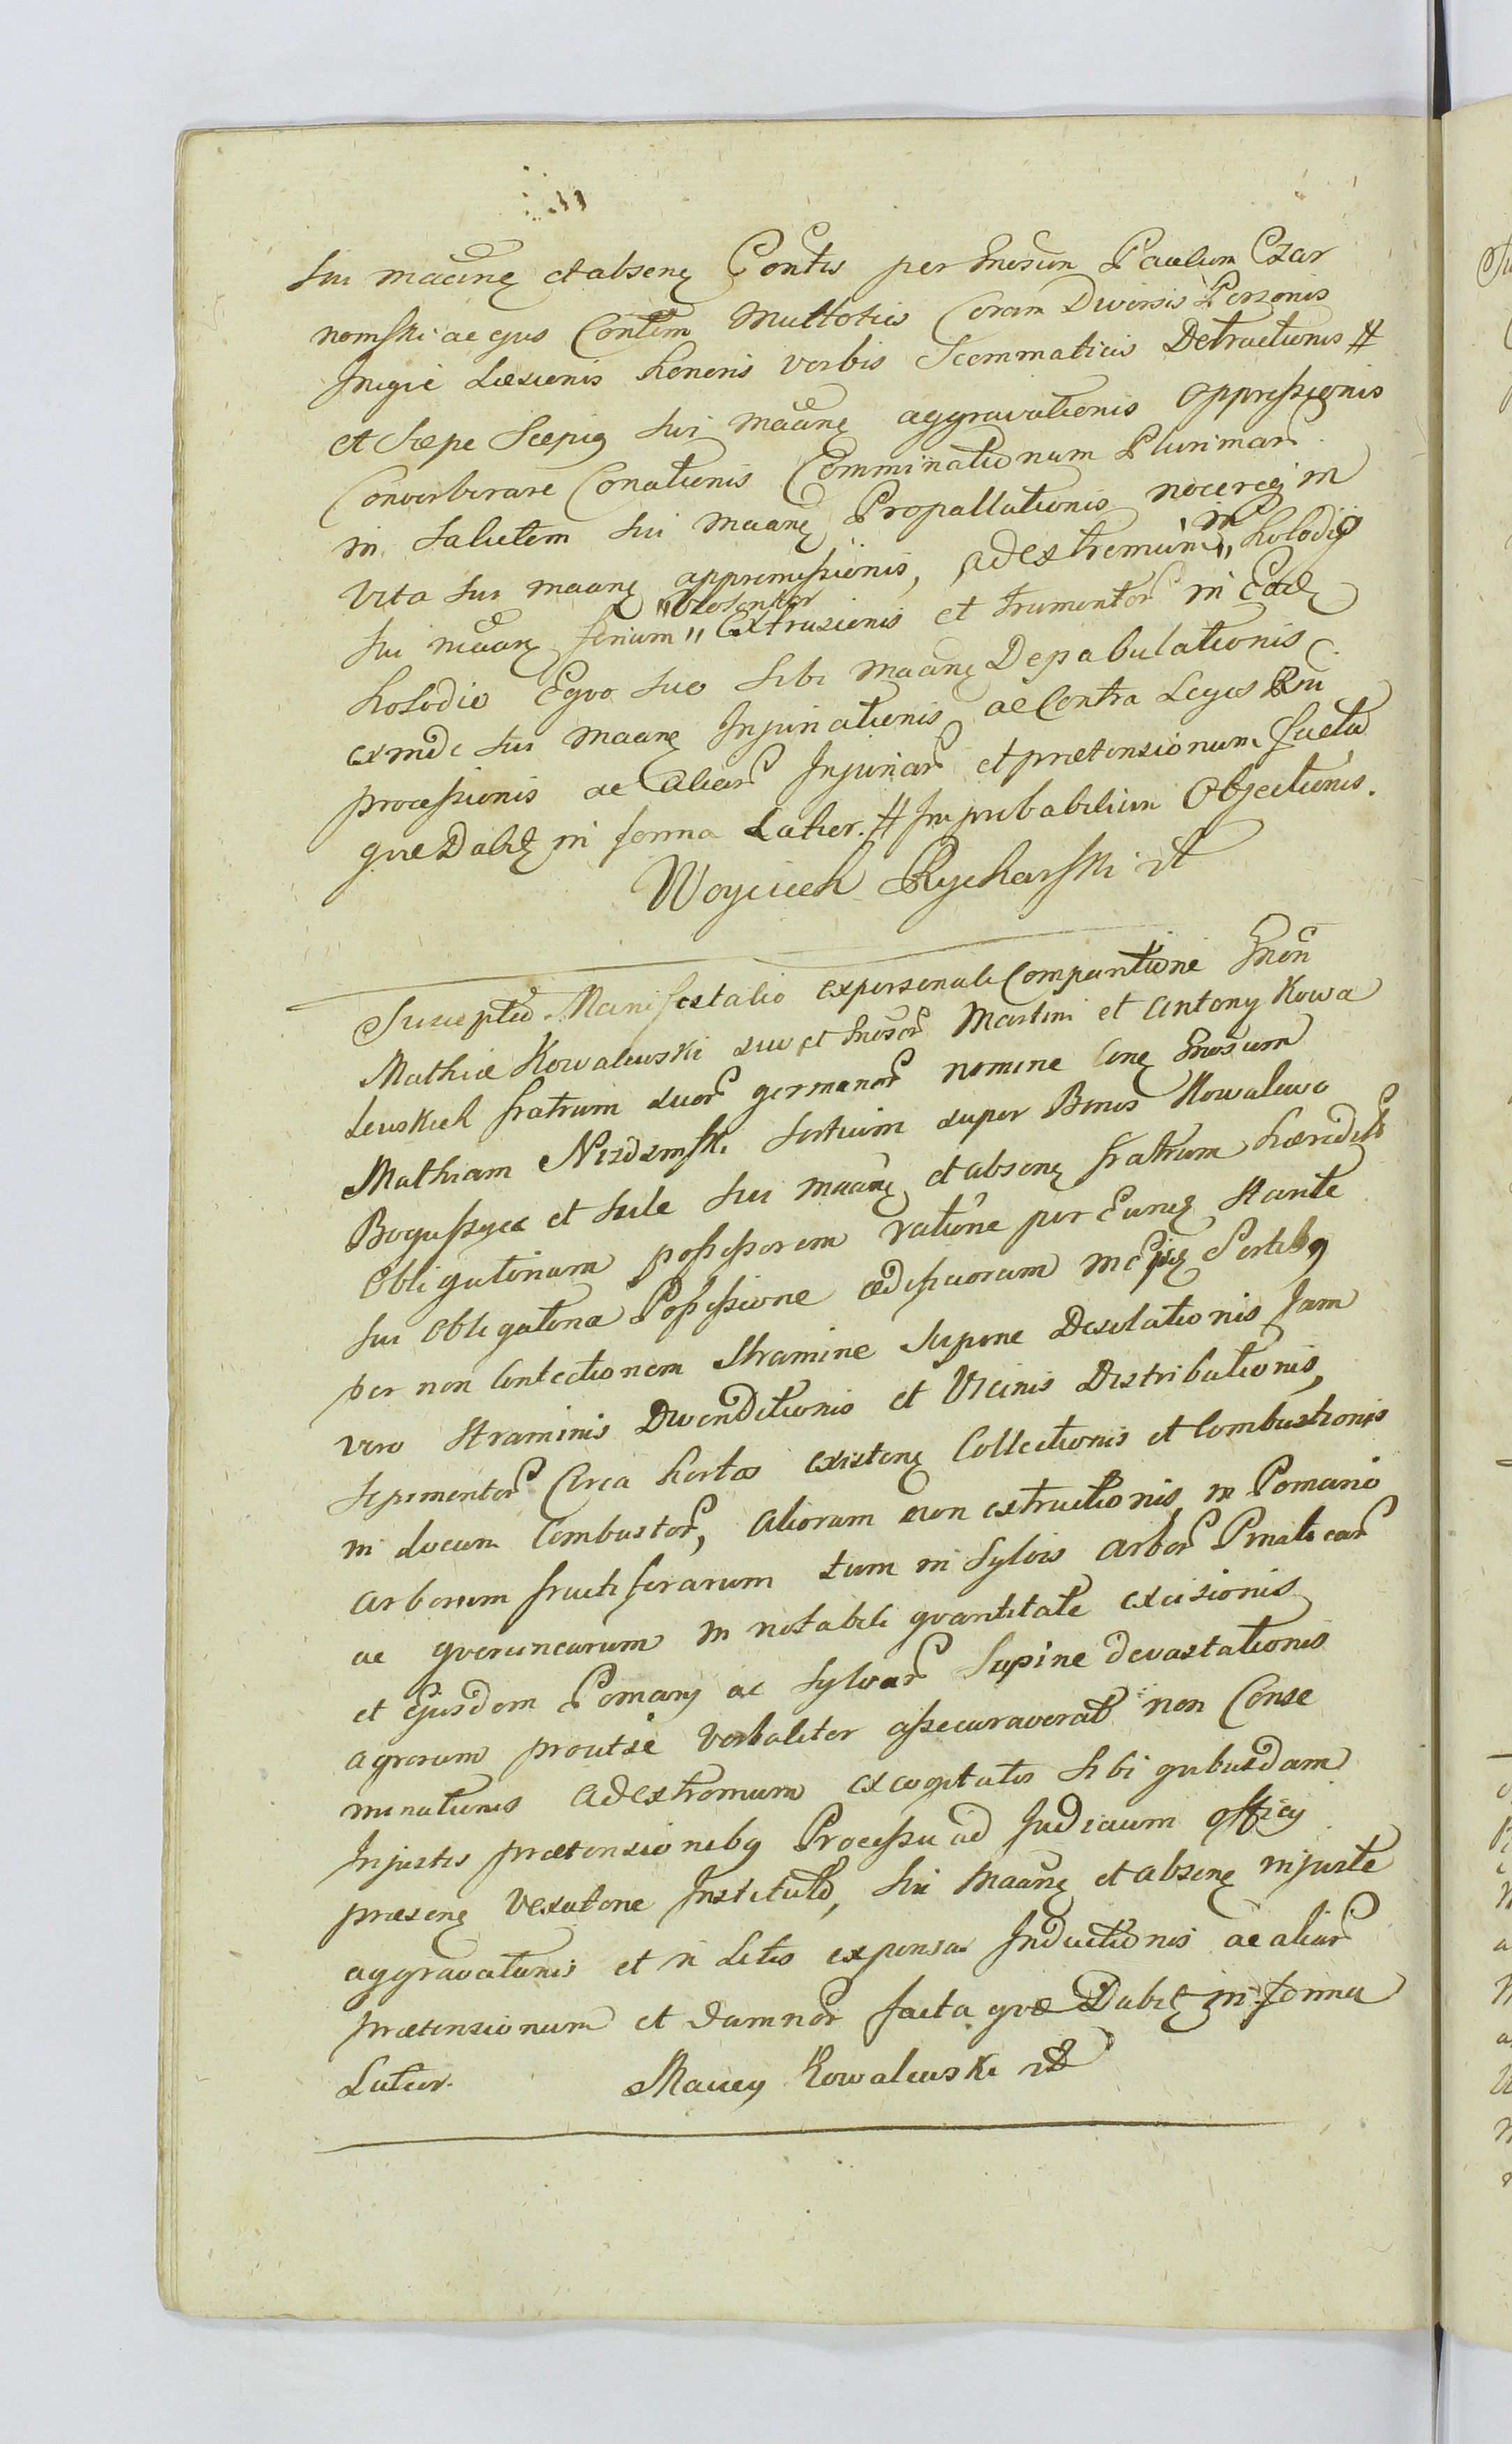 sui maane et absene Contis per Gnosum Paulum Czar
nomski ac ejus Contem Multoties Coram Diversis Personis
Inigie Læsionis honoris verbis Scommaticis Detractionis #
et sæpe Sæpiq sui maane aggravationis oppressionis
Converberare Conationis Comminationum Plurimar
in salutem sui maane Propallationis noceręq in
Vita sui maane appromissionis, ad extremum "in" holodio
sui maane fenum "violenter" Extrusionis et frumentor in Eode
holodio Equo suo sibi maane Depabulationis
exinde sui maane Injuriationis ac Contra Leges Rni
processionis ac aliar Injuriar et prætensionum facta
quæ Dabit in forma Latior. # Improbabilium Objectionis.
Woyciech Rycharski
Suscepta Manifestatio ex personali Comparitione Gnosi
Mathiæ Kowalewski suo et Gnosor Martini et Antonij Kowa
lewskich fratrum suor germanor nomine Cone Gnosum
Mathiam Nizdzinski Sortium super Bonis Kowalewo
Boguszyce et Sule sui maane et absene fratrum hæredit
Obligatorium possessorem ratione per Eune stante
sui obligatoria Possessione ædificiorum in ejs Sortibq
per non Contectionem Stramine Supine Desolationis Jam
vero Straminis Divenditionis et Vicinis Distributionis,
sepimentor Circa hortos existene Collectionis et Combustionis
in locum Combustor, aliorum non extructionis in Pomario
arborum fructiferarum tum in Sylvis arbor Pinaticar
ac quercincarum in notabili quantitate excisionis
et Ejusdem Pomarij ac Sylvar Supine devastationis
agrorum prout se verbaliter assecuraverat non Conse
minationis ad extremum excogitatis sibi quibusdam
Injustis prætensionibq Processu ad Judicium officij
præsene vexatorie Instituto, sui maane et absene injuste
aggravationis et in Litis expensa Inductionis ac aliar
prætensionum et damnor facta quæ Dabit in forma
Latior. Maciey Kowalewski